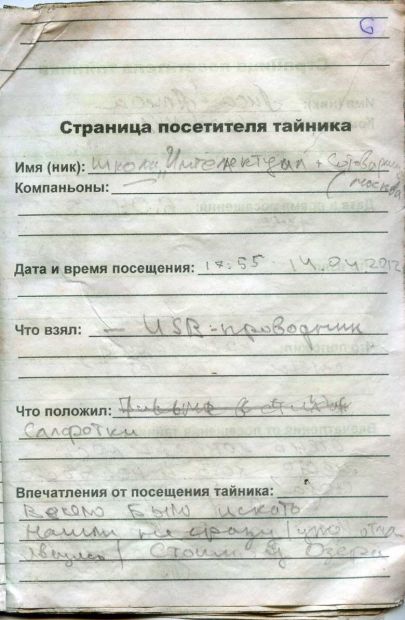 6
Страница посетителя тайника
Имя (ник): школа "Интеллектуал" +
Компаньоны: — (Москва)
Дата и время посещения: 18:55 14.04.2012
Что взял: — USB-проводник
Что положил:
Салфетки
Впечатления от посещения тайника:
Весело было искать
Нашли не сразу (уже
) Стоим у Озера